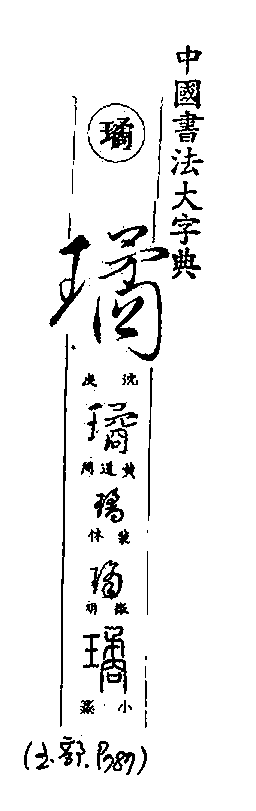 中國書法大字典
璚
璚
沈度
璚
黃道周
璚
裴休
璚
徵明
璚
小篆
(玉部.P787)